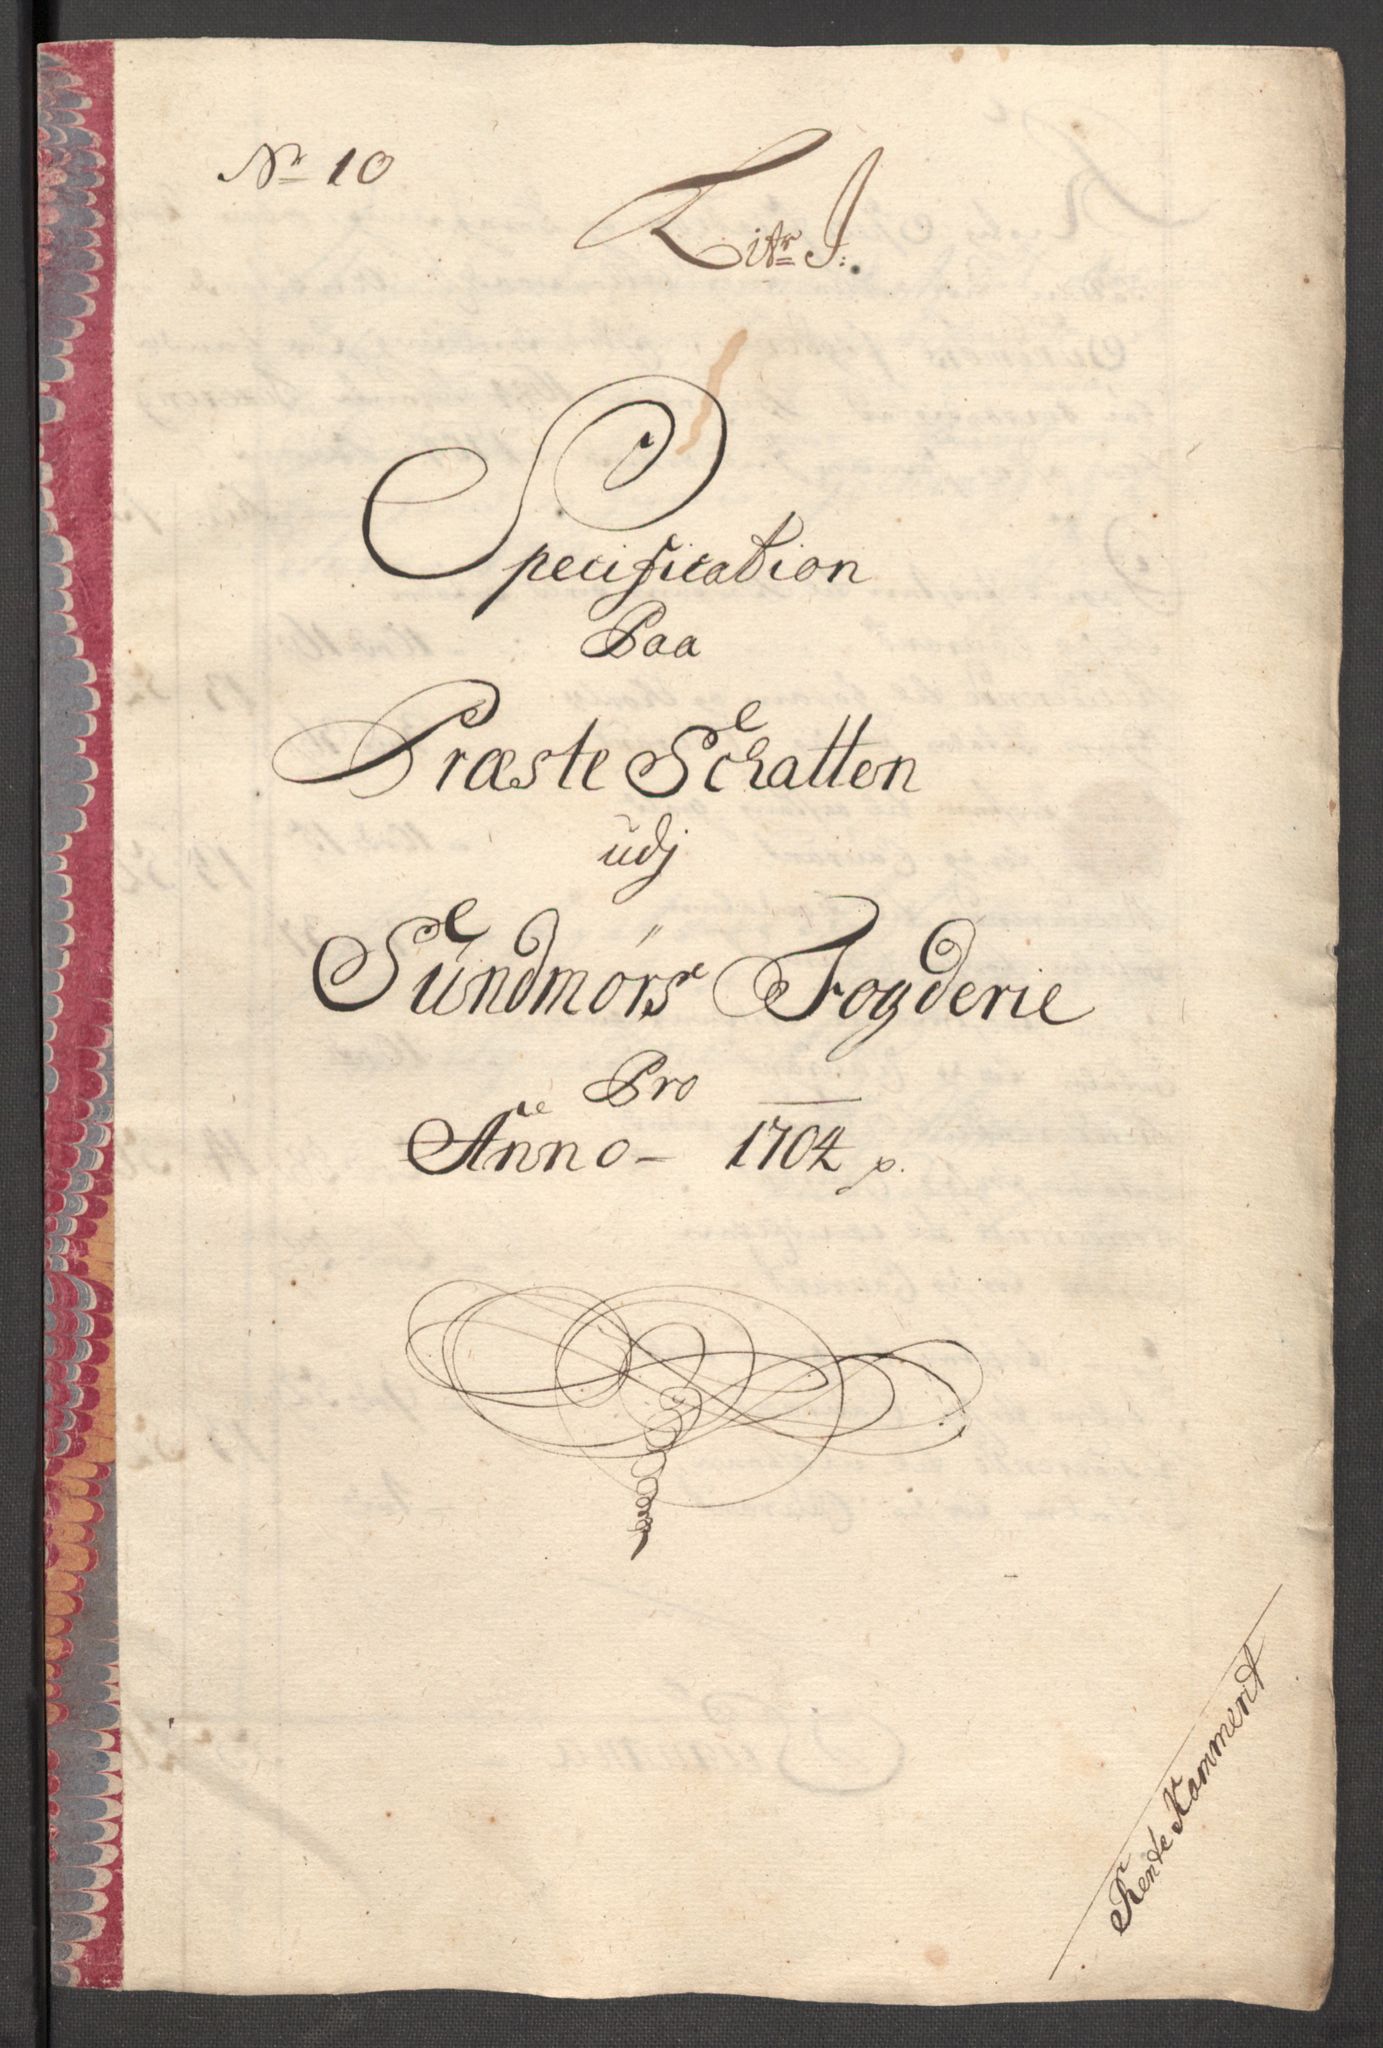 No 10
Litr J:
Specification
Paa
Præste Schatten
udj
Sündmörs Fogderie
Pro
Anno – 1704 p.
Rente Kammerit